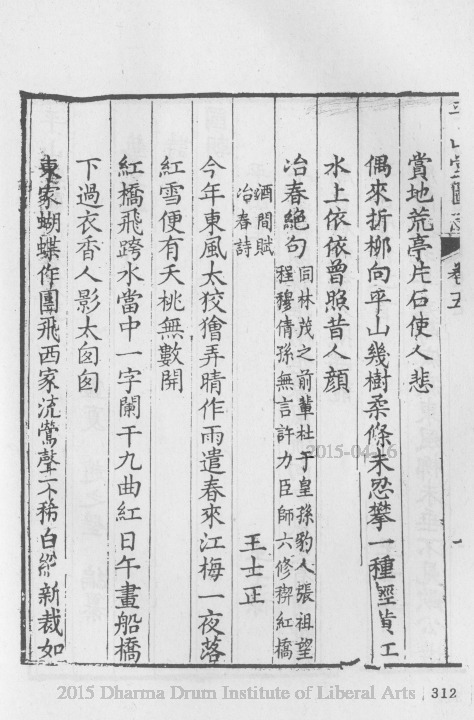 平山堂圖志 卷五
賞地荒亭片石使人悲
偶來折柳向平山幾樹柔條未忍攀一種
水上依依曾照昔人顏
冶春絶句 同林茂之前輩杜于皇孫豹人張祖望
程穆倩孫無言許力臣師六修禊紅橋
酒間賦
冶春詩
王士正
今年東風太狡獪弄晴作雨遣春來江梅一夜落
紅雪便有夭桃無數開
紅橋飛跨水當中一字闌干九曲紅日午畫船橋
下過衣香人影太匆匆
東家蝴蝶作團飛西家流鶯聲不稀白紵新裁如
2015-04-16
2015 Dharma Drum Institute of Liberal Arts
312